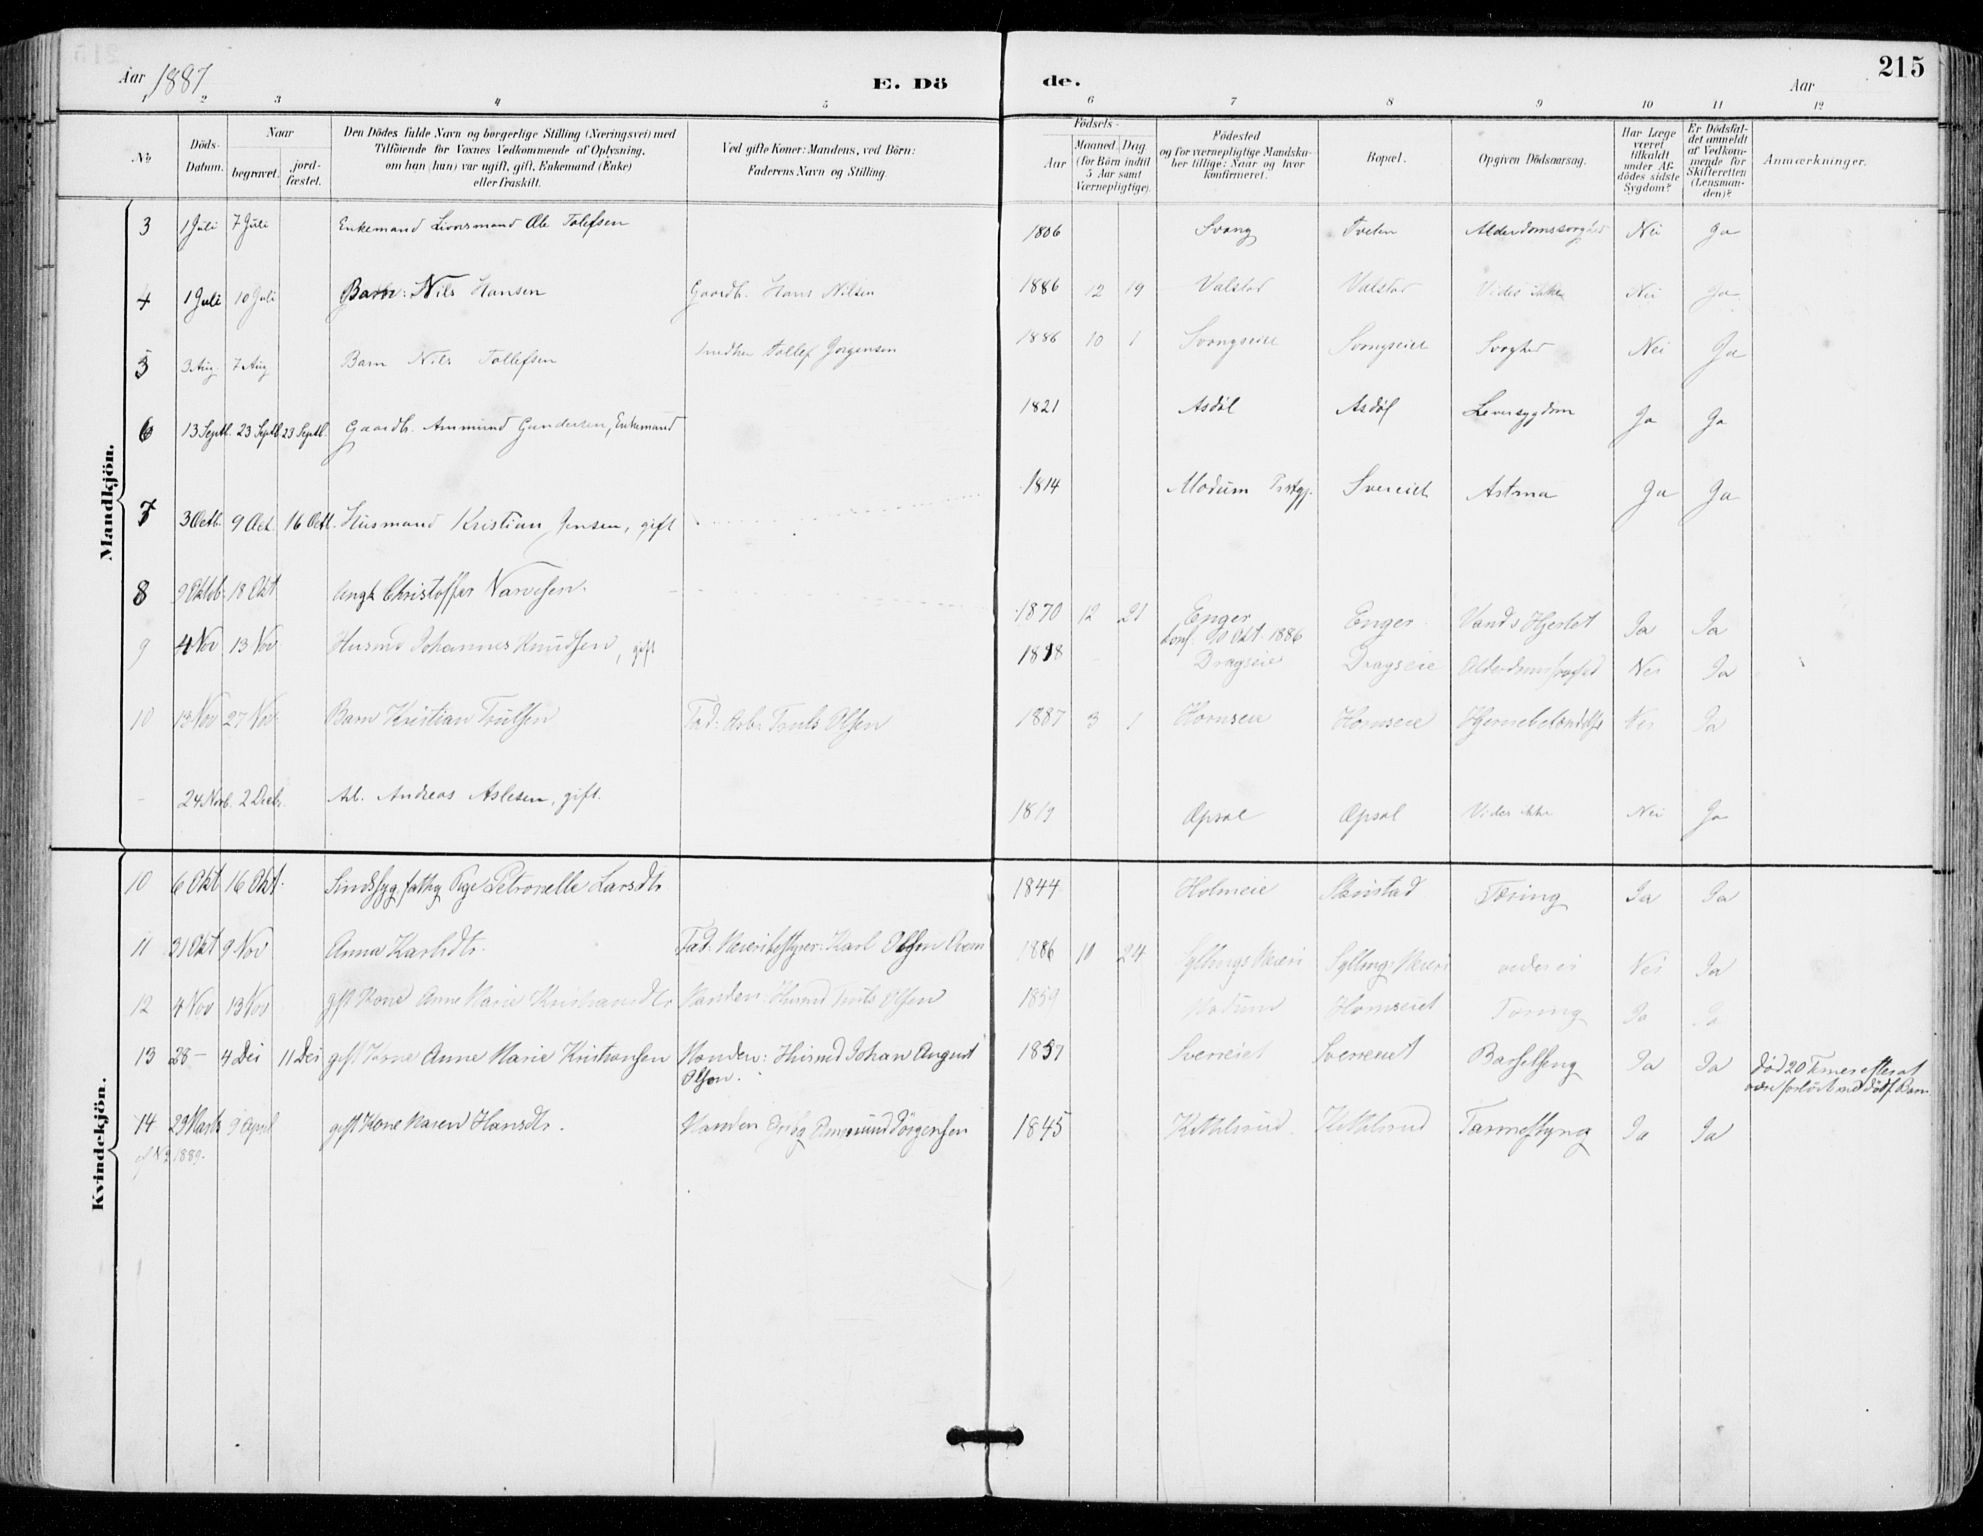 Aar 1887
E. Döde.
Aar
215
1 2 3 4 5 6 7 8 9 10 11 12
No
Döds-Datum.
Naar
begravet.
jord-fæstet.
Den Dödes fulde Navn og borgerlige Stilling (Næringsvei) med
Tilföiende for Voxnes Vedkommende af Oplysning,
om han (hun) var ugift, gift, Enkemand (Enke)
eller fraskilt.
Ved gifte Koner: Mandens, ved Börn:
Faderens Navn og Stilling.
Födsels-
Aar
Maaned Dag
(for Börn indtil
5 Aar samt
Værnepligtige).
Födested
og for værnepligtige Mandska-
ber tillige: Naar og hvor
konfirmeret.
Bopæl.
Opgiven Dödsaarsag.
Har Læge
været
tilkaldt
under Af-
dödes sidste
Sygdom?
Er Dödsfal-
det anmeldt
af Vedkom-
mende for
Skifteretten
(Lensman-
den)?
Anmærkninger.
Mandkjön.
3 1 Juli 7 Juli Enkemand Ole Tolefsen 1806 Svang Tveten Nei Ja
4 1 Juli 10 Juli Barn: Nils Hansen Gaardb. Hans Nilsen 1886 12 19 Valstad Valstad Vides ikke Nei Ja
5 3 Aug. 7 Aug Barn Nils Tollefsen Tollef Jørgensen 1886 10 1 Svangseiet Svangseiet Svaghed Nei Ja
6 13 Septb. 23 Septb 23 Septb. Gaardb. Ammund Gundersen, Enkemand 1821 Asdøl Asdøl Leversygdom Ja Ja
7 3 Octb. 9 Oct. 16 Octb. Husmand Kristian Jensen, gift 1814 Modum Prstgj. Svereiet Astma Ja Ja
8 9 Oktob. 18 Okt Ungk Christoffer Narvesen. 1870 12 21 Enger Enger Vand i Hjertet Ja Ja
Konf. 10 Okt. 1886
9 4 Nov 13 Nov Husmd Johannes Knudsen, gift 1818 Dragseie Dragseie Alderdomssvaghed Nei Ja
10 13 Nov 27 Nov Barn Kristian Trulsen Fad: Arb. Truls Olsen 1887 3 1 Hornseie Hornseie Hjernebetændelse Nei Ja
- 24 Novb. 2 Decb. Arb. Andreas Aslesen, gift. 1819 Opsal Opsal Vides ikke Nei Ja
Kvindekjön.
10 6 Okt 16 Okt. Sindssyg fattig Pige Petronelle Larsdtr 1844 Holmeie Skinstad Tæring Ja Ja
11 31 Okt 9 Nov Anna Karlsdtr. Fad: Meieribestyrer: Karl Olsen Oven 1886 10 24 Syllings Meieri Syllings Meieri vides ei Nei Ja
12 4 Nov 13 Nov gift Kone Anne Marie Kristiansdtr Manden: Husmd Truls Olsen 1859 Modum Hornseiet Tæring Ja Ja
13 28 - 4 Des 11 Des gift Kone Anne Marie Kristiansen Manden: Husmd Johan August 1857 Svereiet Svereiet Barselseng Ja Ja død 20 Timer efter at
Olsen. være forløst med dødf. Barn
14 29 Marts 9 April gift Kone Maren Hansdtr. Manden Amund Jörgensen 1845 Kittilsrud Kittilsrud Tarmeslyng Ja Ja
cf No 2 1889.